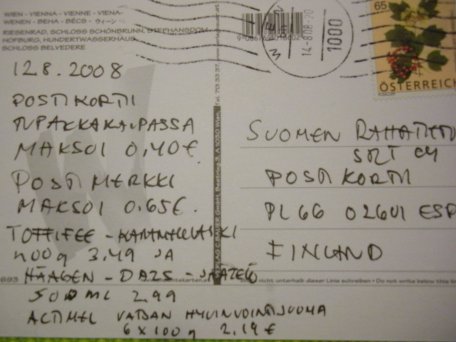 WIEN - VIENNA - VIENNE - VIENA-
WENEN - BEHA - BÉCS - ウィーン
RIESENRAD, SCHLOSS SCHÖNBRUNN, STEPHANSDOM,
HOFBURG, HUNDERTWASSERHAUS,
SCHLOSS BELVEDERE
1000
65
ÖSTERREICH
12.8.2008
POSTIKORTTI
TUPAKKAKAUPASSA
MAKSOI 0,40€
POSTIMERKKI
MAKSOI 0.65€.
TOFFIFEE-
400g 3.49 JA
HÄAGEN-DAZS-JÄÄTELÖ
500ML 2.99
ACTIMEL VATSAN HYVINVOINTIJUOMA
6 x 100g 2,19€
SUOMEN
OY
POSTIKORTTI
PL 66 02601 ESP
FINLAND
693
nicht unterhalb dieser Linie schreiben - Do not write below this